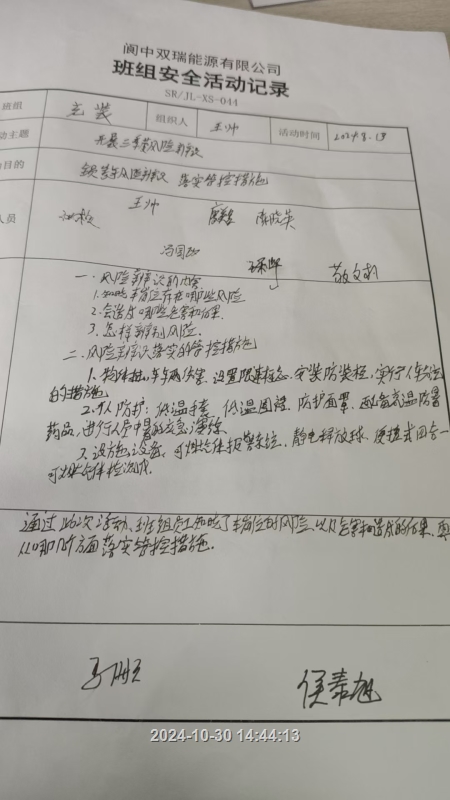 阆中双瑞能源有限公司
班组安全活动记录
SR/JL-XS-044
班组 充装 组织人 王帅 活动时间 2024.8.19
动主题 开展三季度风险辨识
目的 落实管控措施
人员 王帅
一、风险辨识的内容
1.知晓本岗位存在哪些风险
2.会造成哪些危害和后果
3.怎样辨别风险.
二、风险辨识落实的管控措施
1.物体打击,车辆伤害、设置限速标志、安装防装柱、实行人车分流
的措施
2.个人防护:低温手套、低温围裙、防护面罩、配备高温防暑
药品,进行人员中暑的应急演练
3.设施设备:可燃气体报警系统,静电释放球,便携式四合一
可燃气体检测仪.
通过此次活动,班组员工知晓了本岗位的风险,以及危害和造成的后果,
从哪几方面落实管控措施.
2024-10-30 14:44:13